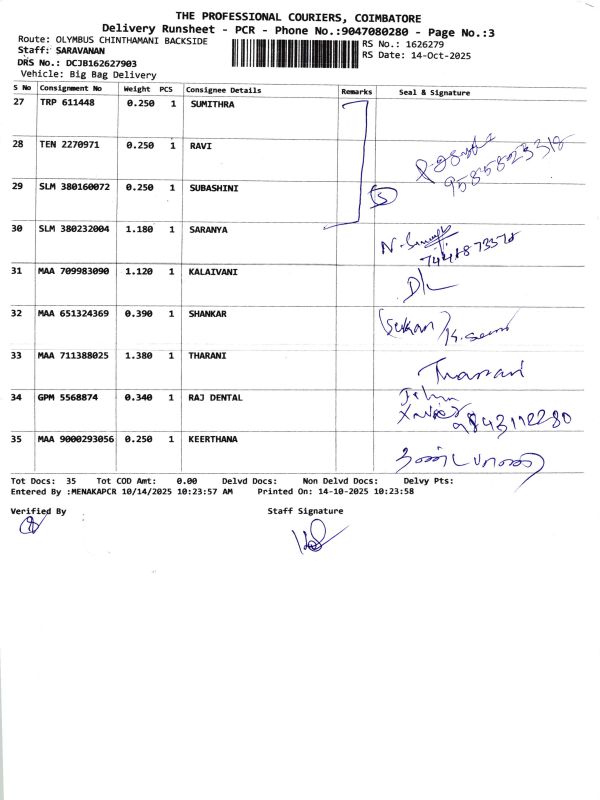 THE PROFESSIONAL COURIERS, COIMBATORE
Delivery Runsheet - PCR - Phone No.:9047080280 - Page No.:3
Route: OLYMBUS CHINTHAMANI BACKSIDE
RS No.: 1626279
Staff: SARAVANAN
RS Date: 14-Oct-2025
DRS No.: DCJB162627903
Vehicle: Big Bag Delivery
S No Consignment No Weight PCS Consignee Details Remarks Seal & Signature
27 TRP 611448 0.250 1 SUMITHRA
28 TEN 2270971 0.250 1 RAVI
9585823318
29 SLM 380160072 0.250 1 SUBASHINI
5
30 SLM 380232004 1.180 1 SARANYA
31 MAA 709983090 1.120 1 KALAIVANI
32 MAA 651324369 0.390 1 SHANKAR
33 MAA 711388025 1.380 1 THARANI
Tharani
34 GPM 5568874 0.340 1 RAJ DENTAL
John
Xavier
9843192280
35 MAA 9000293056 0.250 1 KEERTHANA
Tot Docs: 35 Tot COD Amt: 0.00 Delvd Docs: Non Delvd Docs: Delvy Pts:
Entered By :MENAKAPCR 10/14/2025 10:23:57 AM Printed On: 14-10-2025 10:23:58
Verified By Staff Signature